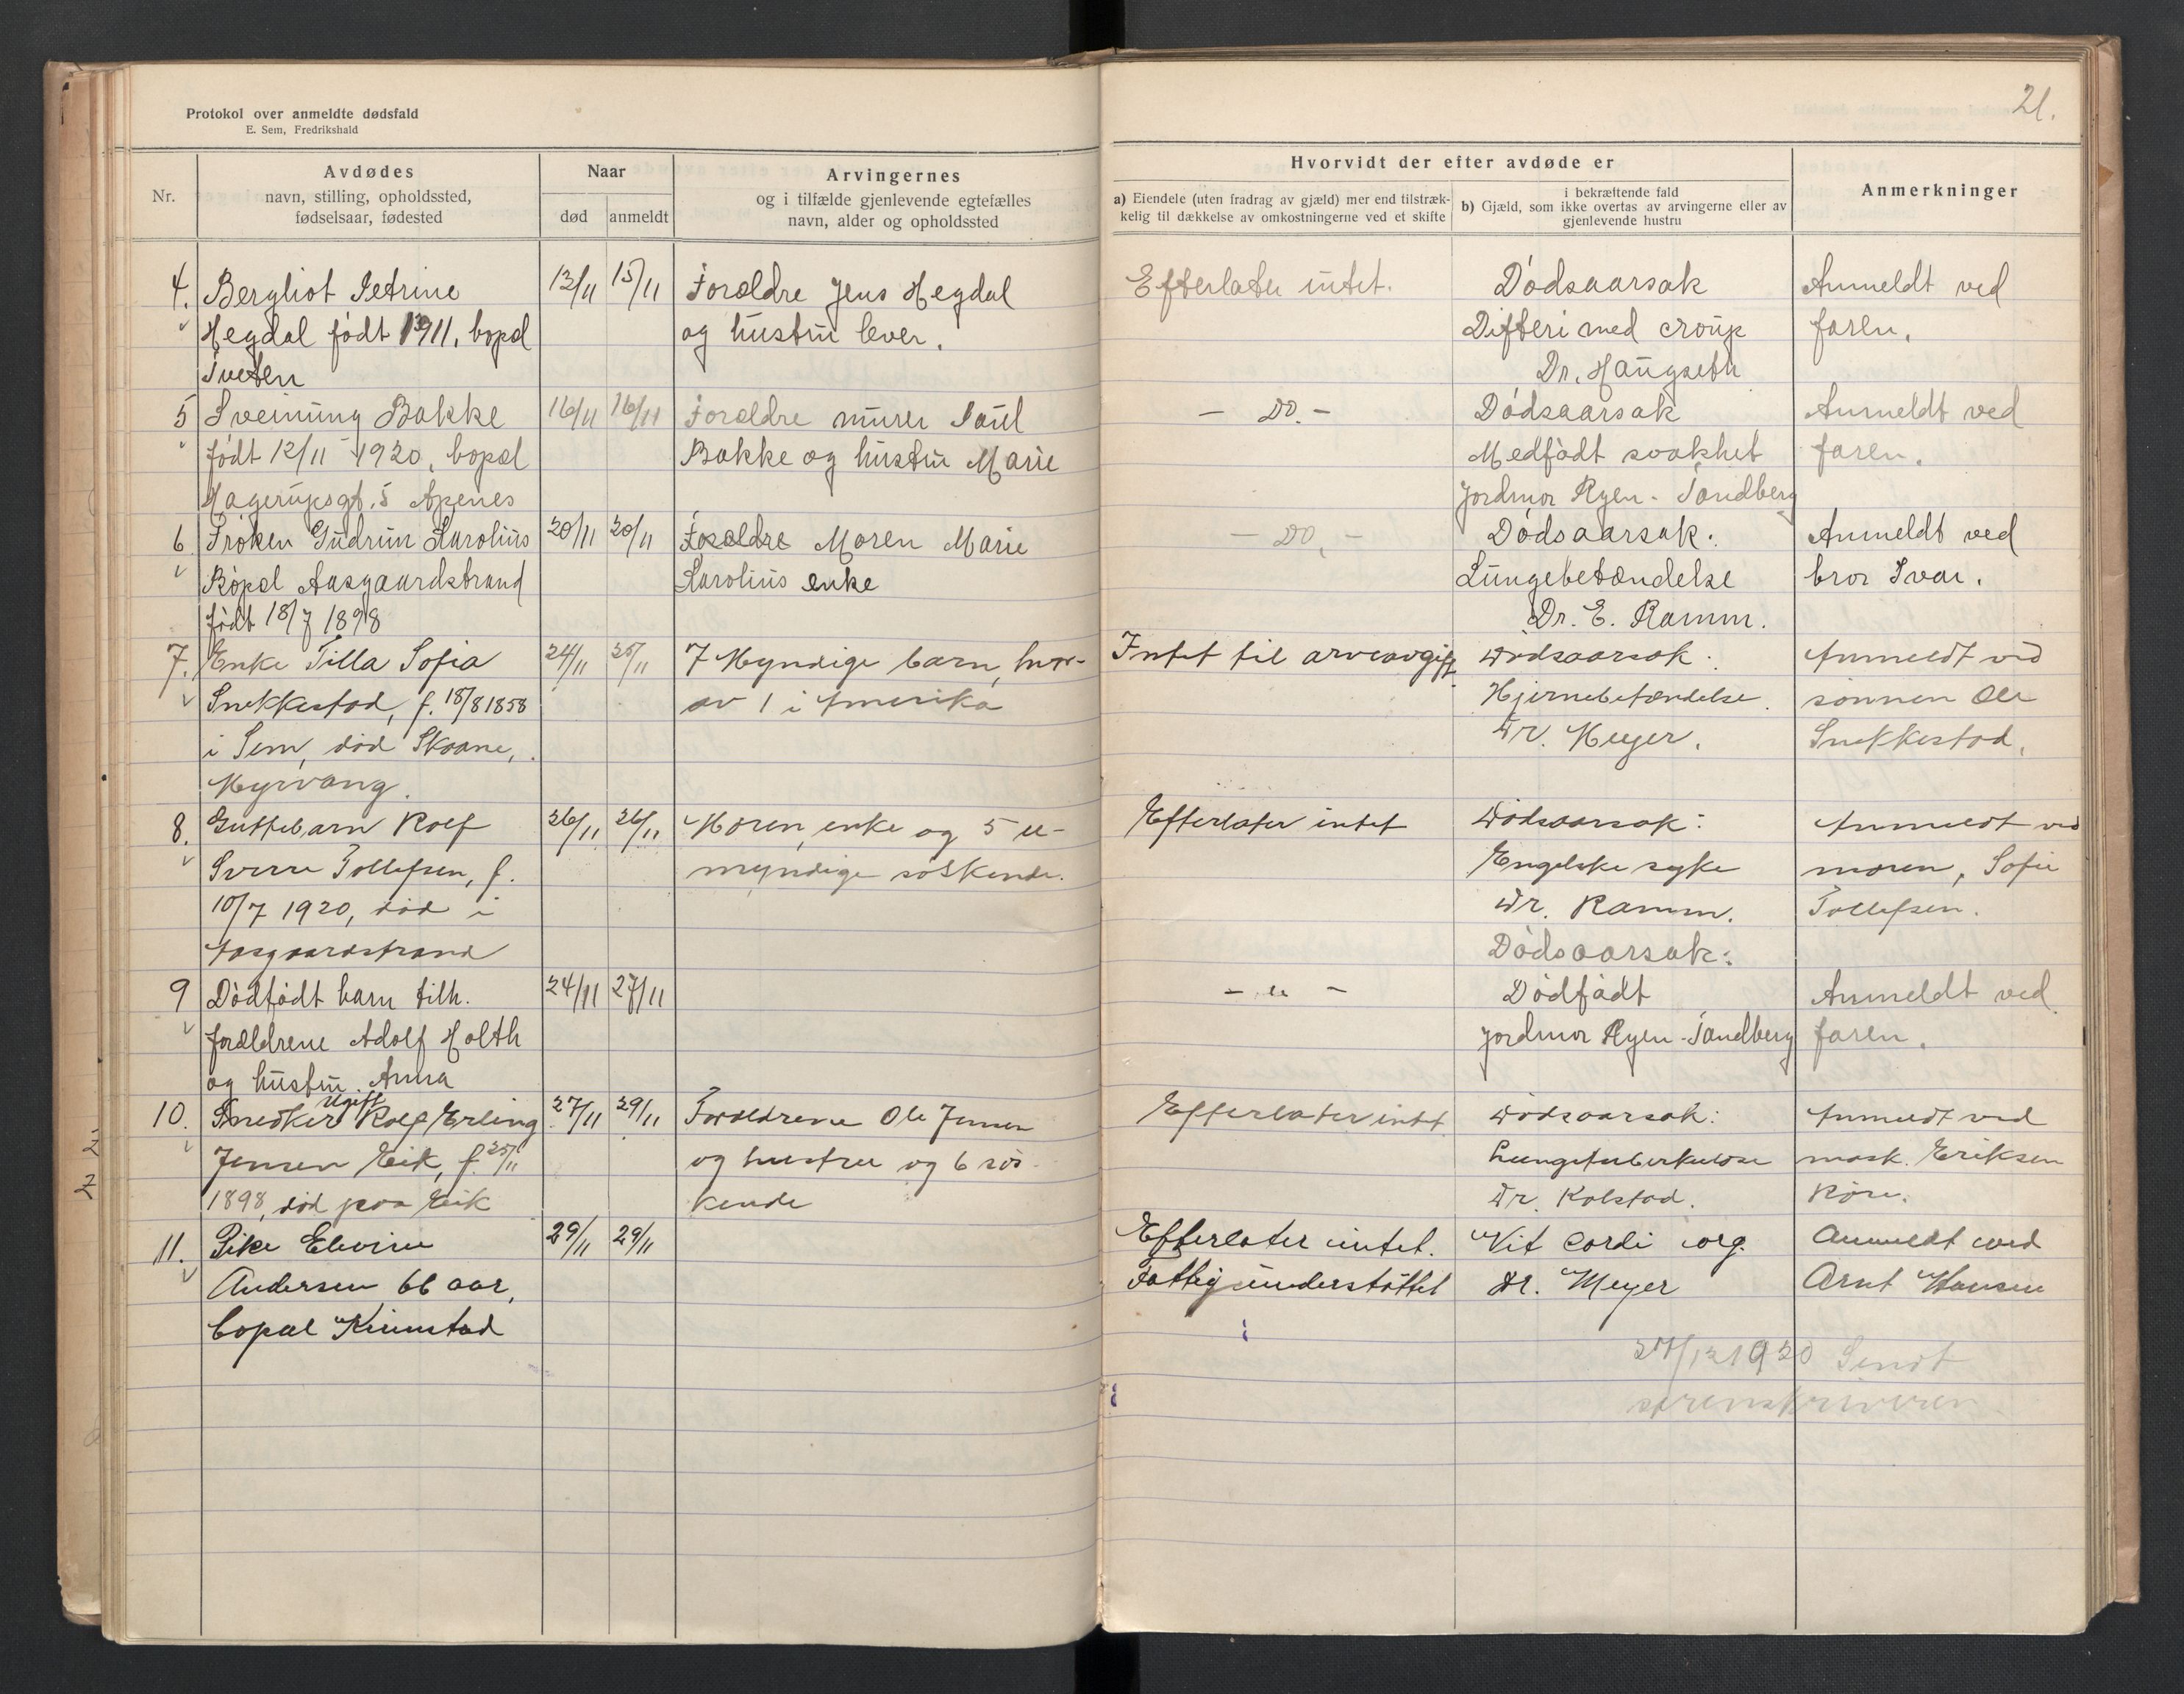 Protokol over anmeldte dødsfald
E. Sem, Fredrikshald
21.
Nr.
Avdødes
navn, stilling, opholdssted,
fødselsaar, fødested
Naar
død anmeldt
Arvingernes
og i tilfælde gjenlevende egtefælles
navn, alder og opholdssted
Hvorvidt der efter avdøde er
a) Eiendele (uten fradrag av gjæld) mer end tilstræk-
kelig til dækkelse av omkostningerne ved et skifte
i bekræftende fald
b) Gjæld, som ikke overtas av arvingerne eller av
gjenlevende hustru
Anmerkninger
4. Bergliot Petrine 13/11 15/11 Forældre Jens Hegdal Efterlater intet. Dødsaarsak Anmeldt ved
Hegdal født 1911, bopæl og hustru lever. Difteri med croup faren.
Tveten Dr. Haugseth
5 Sveinung Bakke 16/11 16/11 Forældre murer Paul - Do. - Dødsaarsak Anmeldt ved
født 12/11 1920, bopæl Bakke og hustru Marie Medfødt svakhet faren.
Hagerupsgt. 5 Apenes Jordmor Ryen-Sandberg
6 Frøken Gudrun Karolius 20/11 20/11 Forældre Moren Marie - Do. - Dødsaarsak. Anmeldt ved
Bopæl Aasgaardstrand Karolius enke Lungebetændelse bror Ivar.
født 18/7 1898 Dr. E. Ramm.
7. Enke Tilla Sofia 24/11 25/11 7 Myndige barn, hvor- Intet til arveavgift. Dødsaarsak: Anmeldt ved
Snekkestad, f. 18/8 1858 av 1 i Amerika Hjernebetændelse. sønnen Ole
i Sem, død Skoane, Dr. Meyer. Snekkestad.
Myrvang.
8. Guttebarn Rolf 26/11 26/11 Moren, enke og 5 u- Efterlater intet Dødsaarsak: Anmeldt ved
Sverre Tollefsen, f. myndige søskende. Engelske syke moren, Sofie
10/7 1920, død i Dr. Ramm. Tollefsen.
Aasgaardstrand Dødsaarsak:
9 Dødfødt barn tilh. 24/11 27/11 - " - Dødfødt Anmeldt ved
forældrene Adolf Holth Jordmor Ryen-Sandberg faren.
og hustru Anna
ugift
10. Snedker Rolf Erling 27/11 29/11 Forældrene Ole Jensen Efterlater intet Dødsaarsak: Anmeldt ved
Jensen Eik, f. 25/11 og hustru og 6 søs- Lungetuberkulose mask. Eriksen
1898, død paa Eik kende Dr. Kolstad. Röre.
11. Pike Elevine 29/11 29/11 Efterlater intet. Vit cordi org. Anmeldt ved
Andersen 66 aar, Fattigunderstøttet Dr. Meyer Arnt Hansen
bopæl Kinnstad
27/12 1920 Sendt
sorenskriveren.